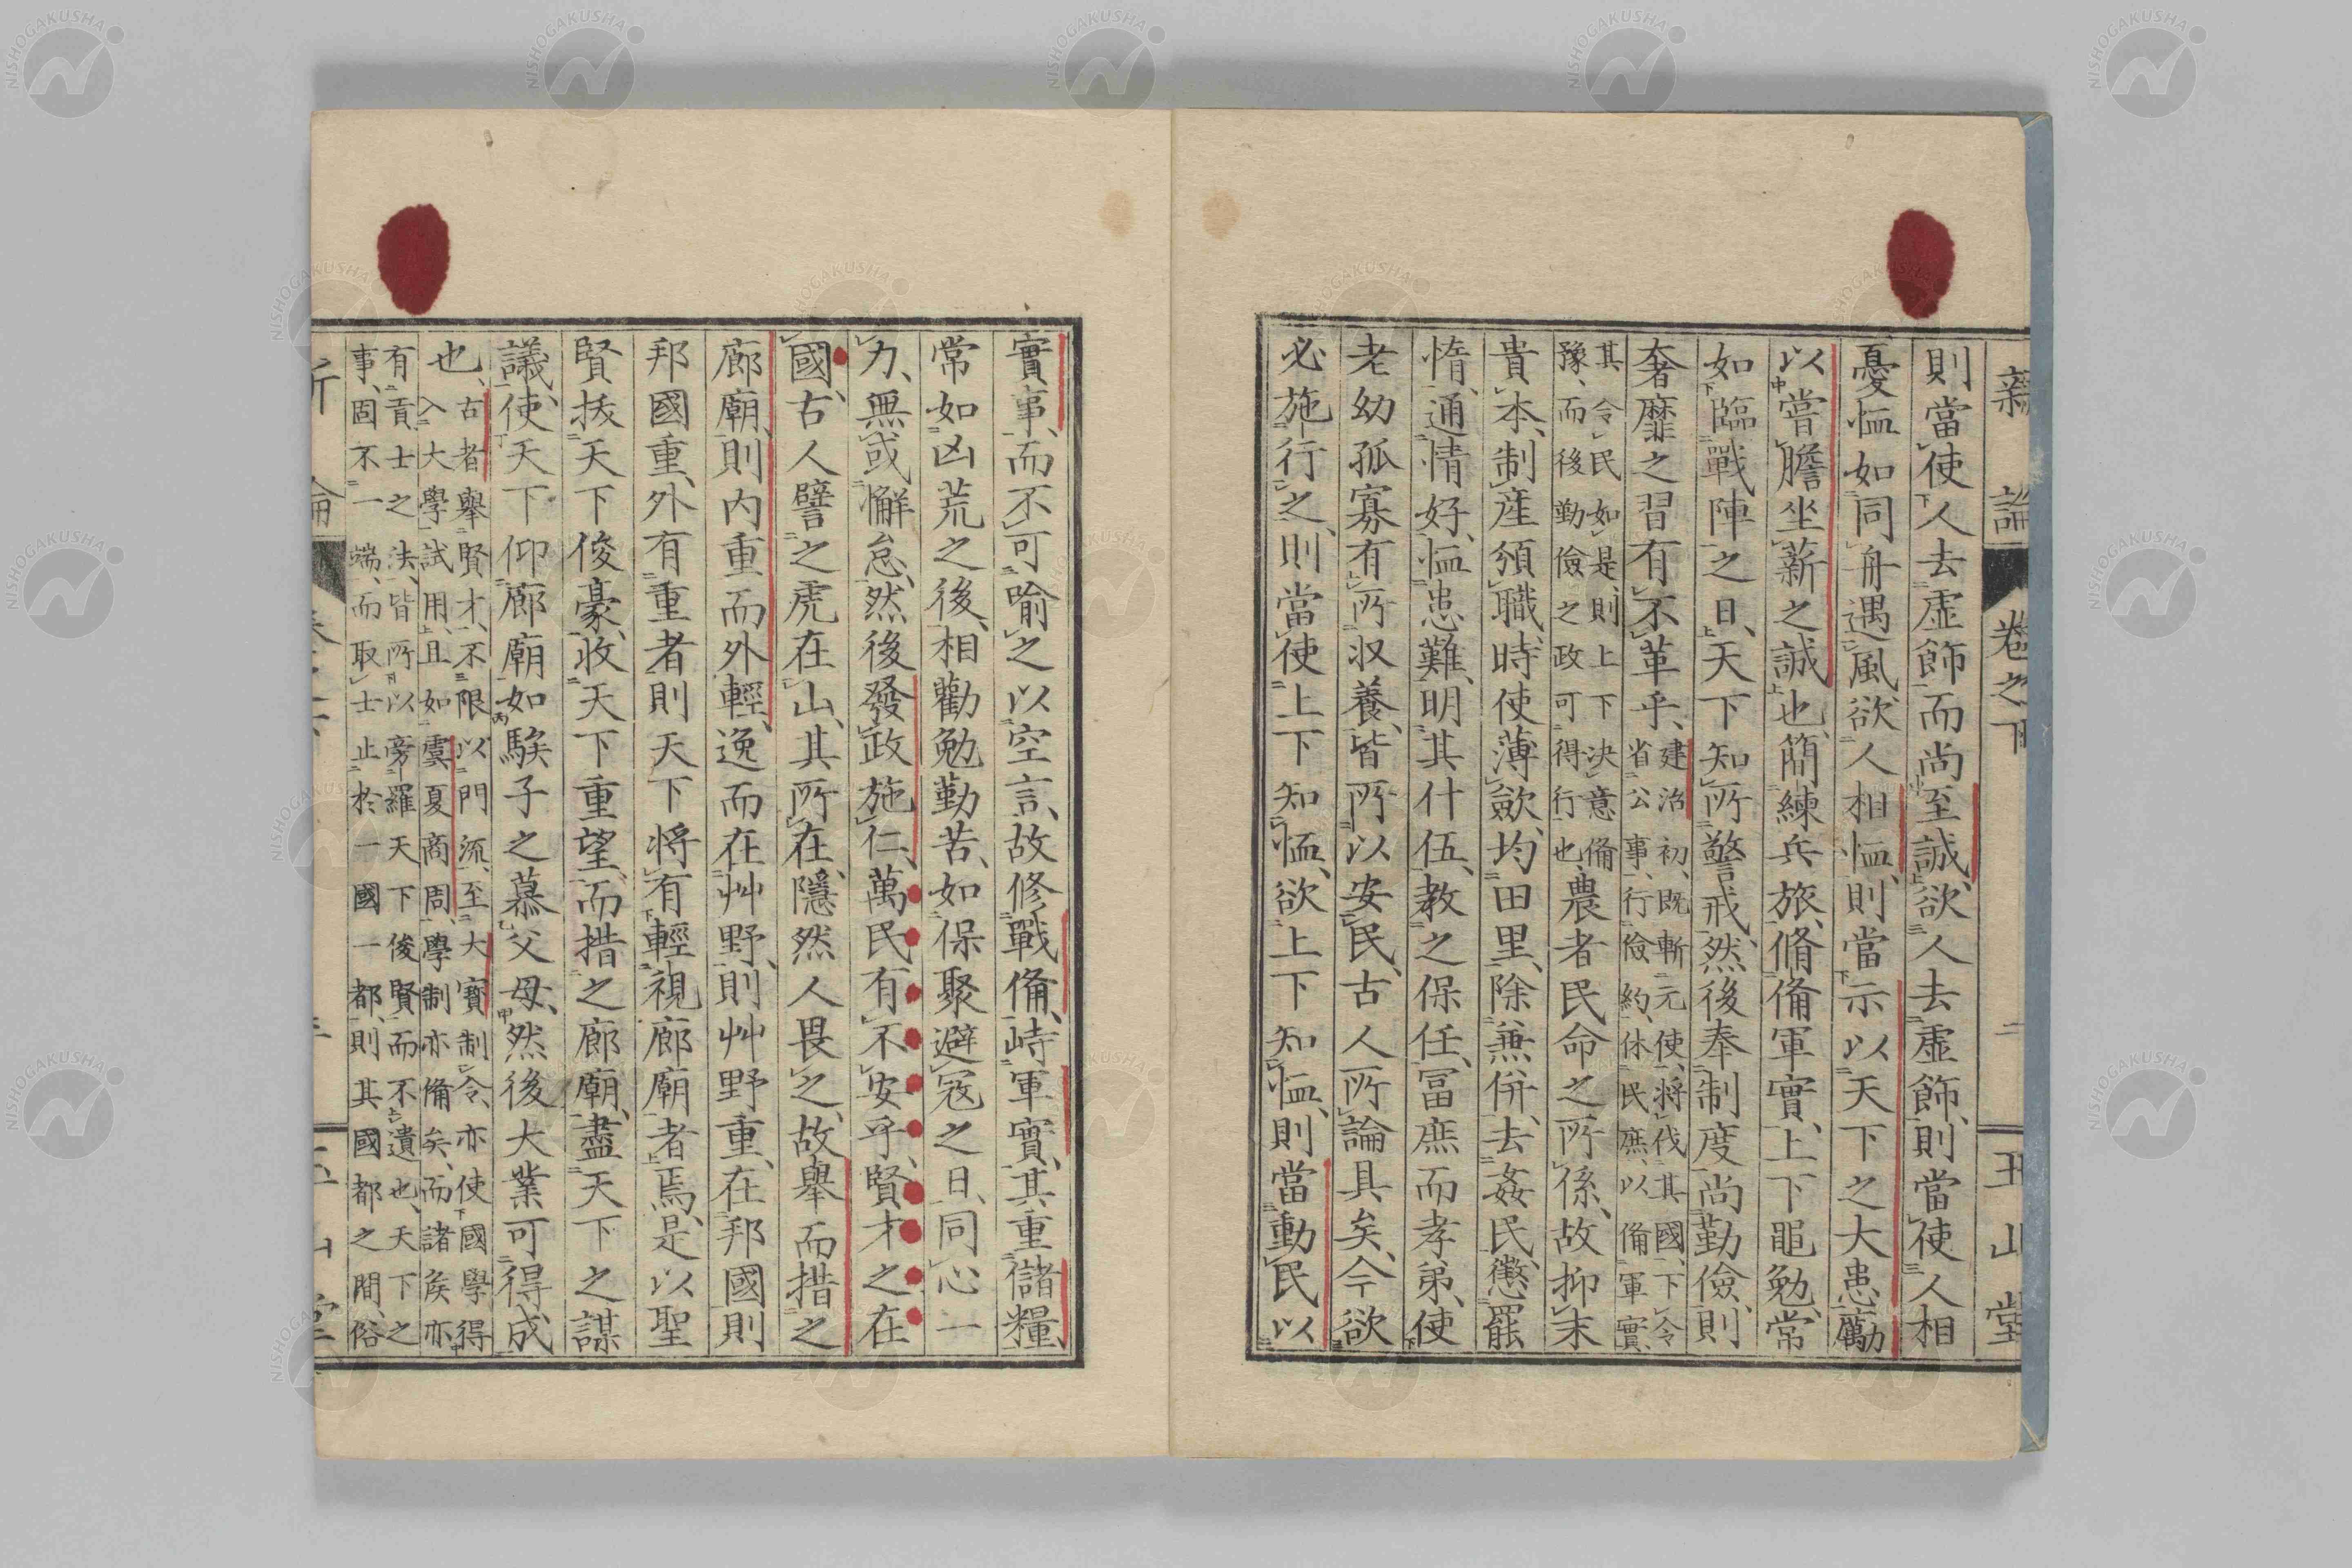 新論 卷之下 二 玉山堂
則當使人去虛飾而尚至誠、欲人去虛飾、則當使人相
憂恤如同舟遇風、欲人相恤、則當示以天下之大患、勵
以嘗膽坐薪之誠也、簡練兵旅、脩備軍實、上下黽勉、常
如臨戰陣之日、天下知所警戒、然後奉制度尚勤儉、則
奢靡之習有不革乎、
建治初、既斬元使、將伐其國、下令
省公事、行儉約、休民庶、以備軍實、
其令民如是、則上下決意備
豫、而後勤儉之政可得行也、
農者民命之所係、故抑末
貴本、制產頒職、時使薄斂、均田里、除兼併、去姦民、懲罷
惰、通情好、恤患難、明其什伍、教之保任、冨庶而孝弟、使
老幼孤寡有所収養、皆所以安民、古人所論具矣、今欲
必施行之、則當使上下知恤、欲上下知恤、則當動民以
實事、而不可喻之以空言、故修戰備、峙軍實、其重儲糧、
常如凶荒之後、相勸勉勤苦、如保聚避寇之日、同心一
力、無或懈怠、然後發政施仁、萬民有不安乎、賢才之在
國、古人譬之虎在山、其所在、隱然人畏之、故舉而措之
廊廟、則内重而外輕、逸而在艸野、則艸野重、在邦國則
邦國重、外有重者則天下將有輕視廊廟者焉、是以聖
賢拔天下俊豪、收天下重望、而措之廊廟、盡天下之謀
議、使天下仰廊廟如騃子之慕父母、然後大業可得成
也、
古者舉賢才、不限以門流、至大寶制令、亦使國學得
入大學試用、且如虞夏商周、學制亦備矣、而諸矦亦
有貢士之法、皆所以旁羅天下俊賢而不遺也、天下之
事、固不一端、而取士止於一國一都、則其國都之間、俗